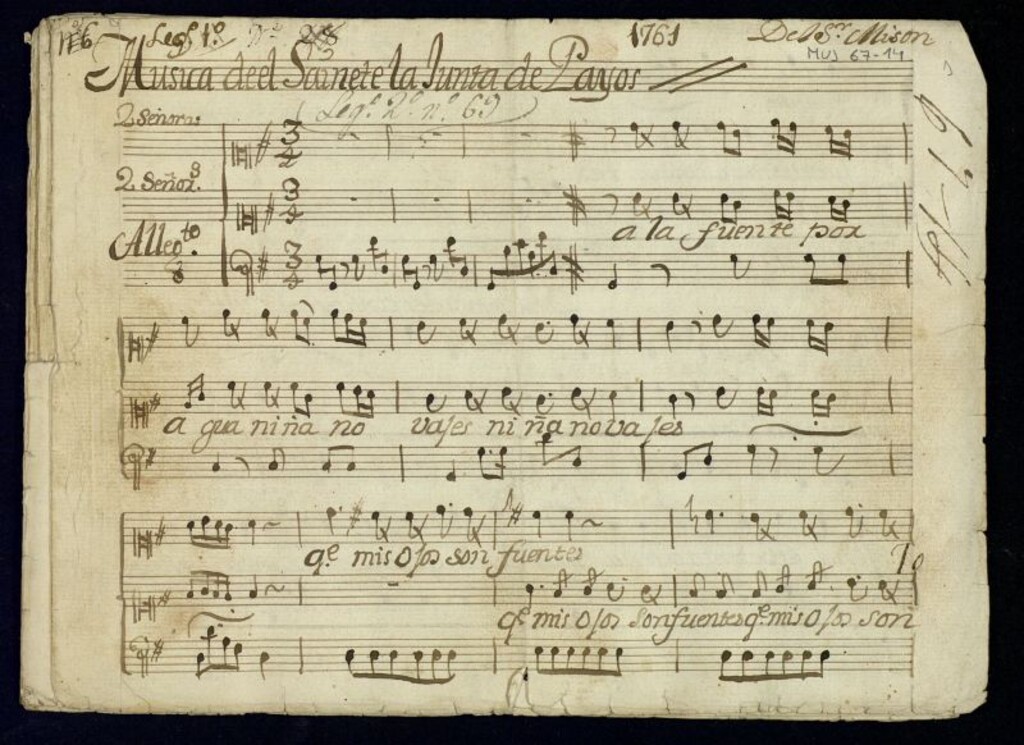 Nº 6 Legº 1º 1761 Del Sr. Mison
MUS 67-14
Musica deel Sainete la Junta de Payos
Legº 2º nº 69
2 Señoras
2 Señors.
a la fuente por
Allegto
a gua niña no vajes niña no vajes
qe mis Ojos son fuentes
qe mis Ojos son fuentes qe mis Ojos son